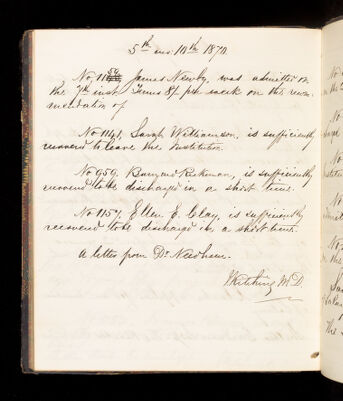 5th mo: 10th 1870
No. 1159, James Newby, was admitted on
the 7th inst. Terms 8/ per week on the recom-
mendation of
No 1141, Sarah Williamson, is sufficiently
recovered to leave the Institution.
No 959. Rickman, is sufficiently
recovered to be discharged in a short time.
No 1157, Ellen E. Clay, is sufficiently
recovered to be discharged in a short time.
A letter from Dr. Needham.
J Kitching M.D.